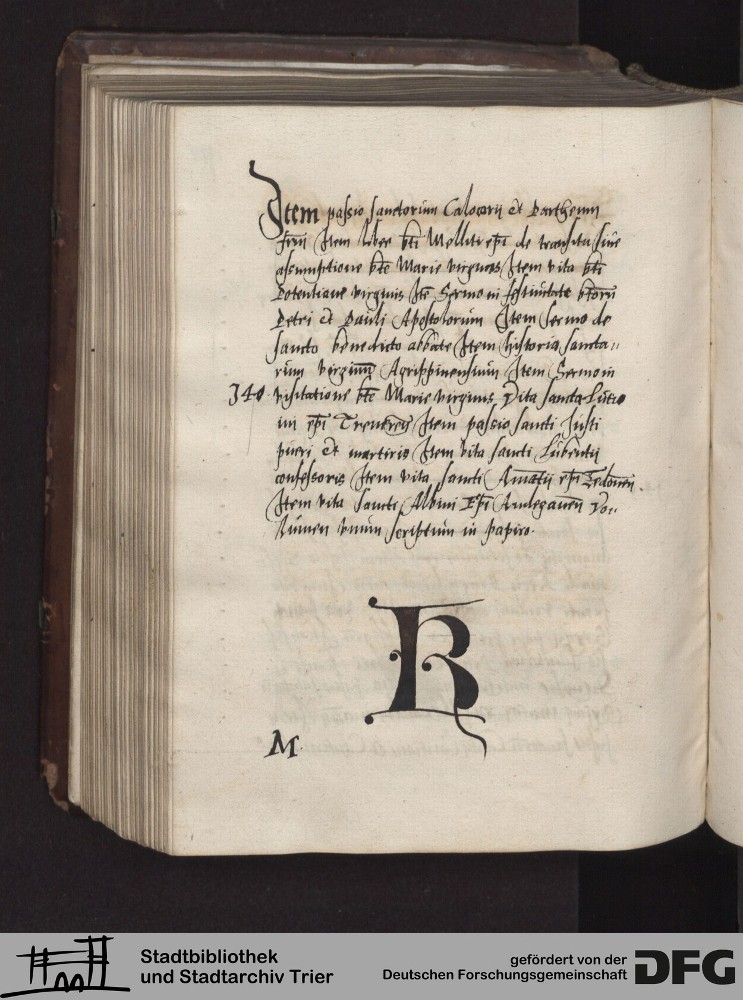 Item passio sanctorum Calocerii et Parthenii
Item liber bti Melliti epi de transitu sive
assumptione bte Marie virginis Item vita bte
Potentiane virginis Ite Sermo in festivitate btoru
Petri et Pauli Apostolorum Item sermo de
sancto benedicto abbate Item historia sancta„
rum virginu Agrippinensium Item Sermo in
340 visitatione bte Marie virginis Vita sancti Lutio
ini epi Treveren Item passio sancti Justi
pueri et martiris Item vita sancti Lubentii
confessoris Item vita sancti Amatii epi Sedonen
Item vita sancti Albini Epi Andegaven Vo„
lumen unum scriptum in papiro.
R
M.
Stadtbibliothek
und Stadtarchiv Trier
gefördert von der
Deutschen Forschungsgemeinschaft
DFG